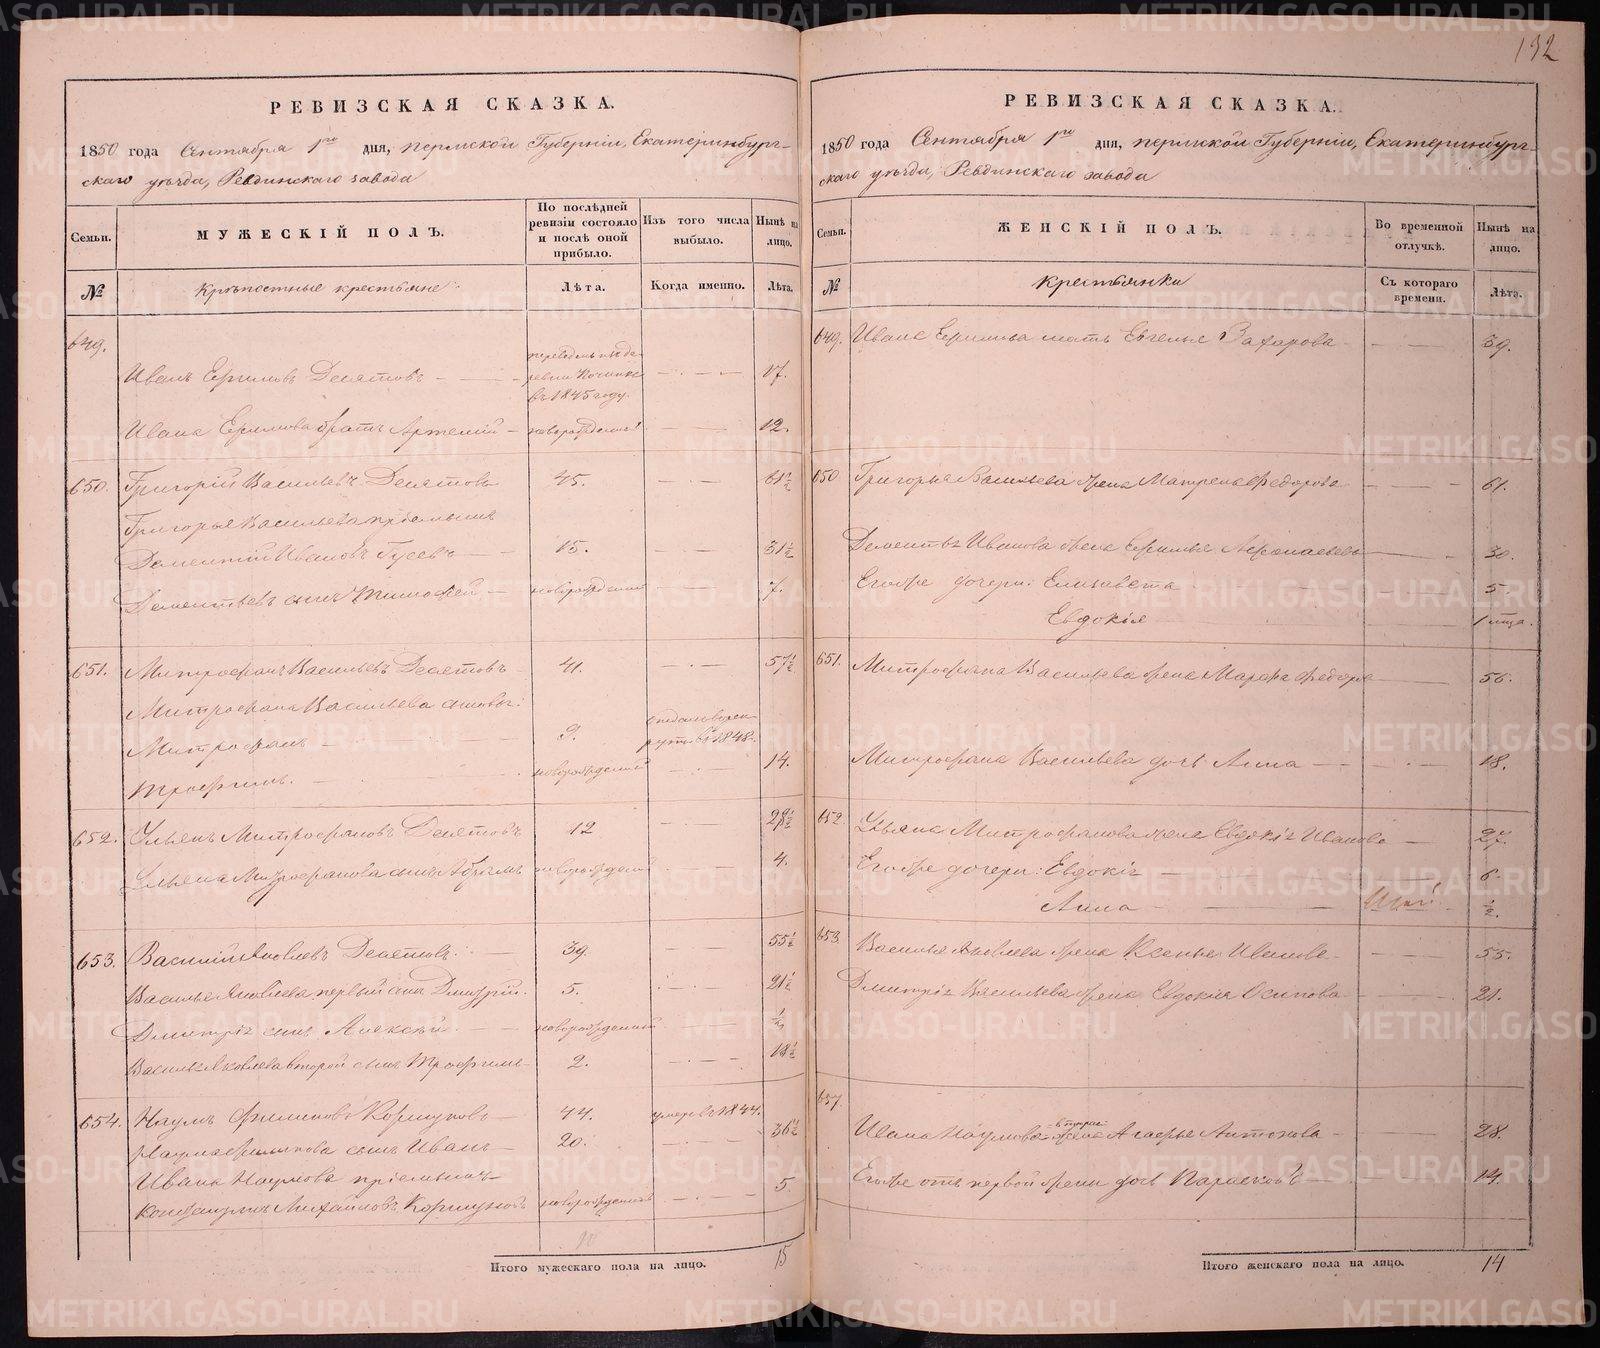 132
РЕВИЗСКАЯ СКАЗКА.
1850 года Сентября 1го дня, пермской Губерніи, Екатеринбург-
скаго уѣзда, Ревдинскаго завода
Семьи.
МУЖЕСКІЙ ПОЛЪ.
По послѣдней ревизіи состояло и послѣ оной прибыло.
Изъ того числа выбыло.
Нынѣ на лицо.
№
Крѣпостные крестьяне
Лѣта.
Когда именно.
Лѣта.
649.
Иванъ Десятовъ переведенъ изъ деревни въ 1845 году. 17.
Ивана братъ Артемій новорожденный 12.
650. Григорій Васильевъ Десятовъ 45. 61½
Григорья Васильева пріемышъ
Дементій Ивановъ Гусевъ 15. 31½
Дементьевъ сынъ Тимофей новорожденный 7.
651. Митрофанъ Васильевъ Десятовъ 41. 57½
Митрофана Васильева сыновья:
Митрофанъ 9. отданъ въ рекруты въ 1848.
Трофимъ. новорожденный 14.
652. Ульянъ Митрофановъ Десятовъ 12 28½
Ульяна Митрофанова сынъ Абрамъ новорожденный 4.
653. Василій Яковлевъ Десятовъ 39. 55½
Василья Яковлева первый сынъ Дмитрій. 5. 21½
Дмитрія сынъ Алексѣй. новорожденный ½
Василья Яковлева второй сынъ Трофимъ 2. 18½
654. Наумъ Филиповъ Коршуновъ 44. умеръ въ 1844.
Наума Филипова сынъ Иванъ 20. 36½
Ивана Наумова пріемышъ
Михайловъ Коршуновъ новорожденный 5.
Итого мужескаго пола на лицо. 15
РЕВИЗСКАЯ СКАЗКА.
1850 года Сентября 1го дня, пермской Губерніи, Екатеринбург-
скаго уѣзда, Ревдинскаго завода
Семьи.
ЖЕНСКІЙ ПОЛЪ.
Во временной отлучкѣ.
Нынѣ на лицо.
№
Крестьянки
Съ котораго времени.
Лѣта.
649. Ивана мать Евгенья Захарова 39.
650 Григорья Васильева жена Матрена Федорова 61.
Дементья Иванова жена 30.
Его же дочери: Елизавета 5.
Евдокія 1 мца.
651. Митрофана Васильева жена Марфа Федорова 56.
Митрофана Васильева дочь Анна 18.
652 Ульяна Митрофанова жена Евдокія Иванова 27.
Его же дочери: Евдокія 6.
Анна ½.
653 Василья Яковлева жена Ксенья Иванова 55.
Дмитрія Васильева жена Евдокія Осипова 21.
654
Ивана Наумова вторая жена Агафья Антонова 28.
Его же отъ первой жены дочь Парасковья 14.
Итого женскаго пола на лицо. 14
METRIKI.GASO-URAL.RU